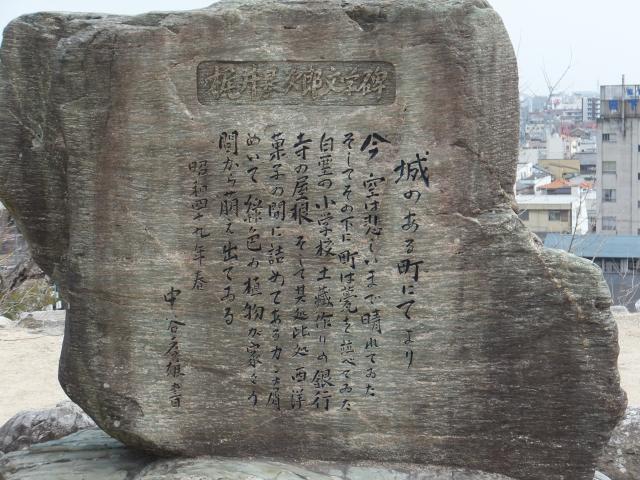 梶井基次郎文学碑
城のある町にてより
今、空は悲しいまで晴れてゐた
そしてその下に町は甍を並べてゐた
白堊の小学校 土蔵作りの銀行
寺の屋根 そして其処此処 西洋
菓子の間に詰めてあるカンナ屑
めいて 緑色の植物が家々の
間から萌え出てゐる
昭和四十九年春
中谷孝雄 書